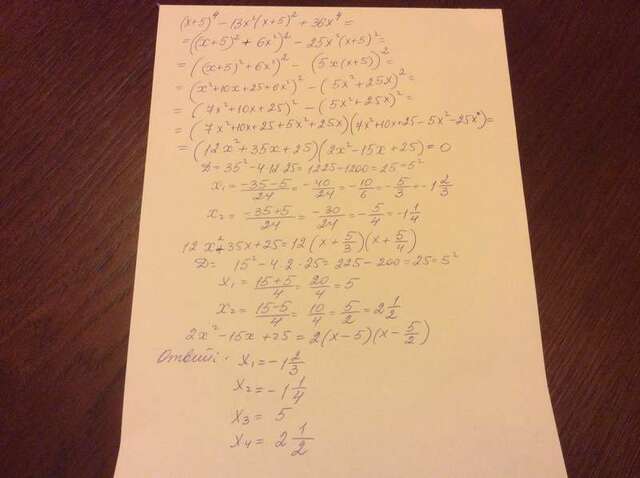 (x+5)⁴ - 13x²(x+5)² + 36x⁴ =
= ((x+5)² + 6x²)² - 25x²(x+5)² =
= ((x+5)² + 6x²)² - (5x(x+5))² =
= (x²+10x+25+6x²)² - (5x²+25x)² =
= (7x²+10x+25)² - (5x²+25x)² =
= (7x²+10x+25+5x²+25x)(7x²+10x+25-5x²-25x) =
= (12x²+35x+25)(2x²-15x+25) = 0
D = 35² - 4·12·25 = 1225 - 1200 = 25 = 5²
x₁ = (-35-5)/24 = -40/24 = -10/6 = -5/3 = -1 2/3
x₂ = (-35+5)/24 = -30/24 = -5/4 = -1 1/4
12x²+35x+25 = 12(x + 5/3)(x + 5/4)
D = 15² - 4·2·25 = 225 - 200 = 25 = 5²
x₁ = (15+5)/4 = 20/4 = 5
x₂ = (15-5)/4 = 10/4 = 5/2 = 2 1/2
2x² - 15x + 25 = 2(x-5)(x - 5/2)
Ответ: x₁ = -1 2/3
x₂ = -1 1/4
x₃ = 5
x₄ = 2 1/2